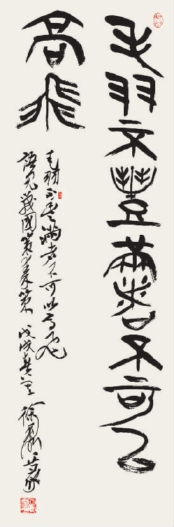 毛羽不豐滿者不可以
高飛
毛羽不豐滿者不可以高飛
語見戰國策秦策 戊戌